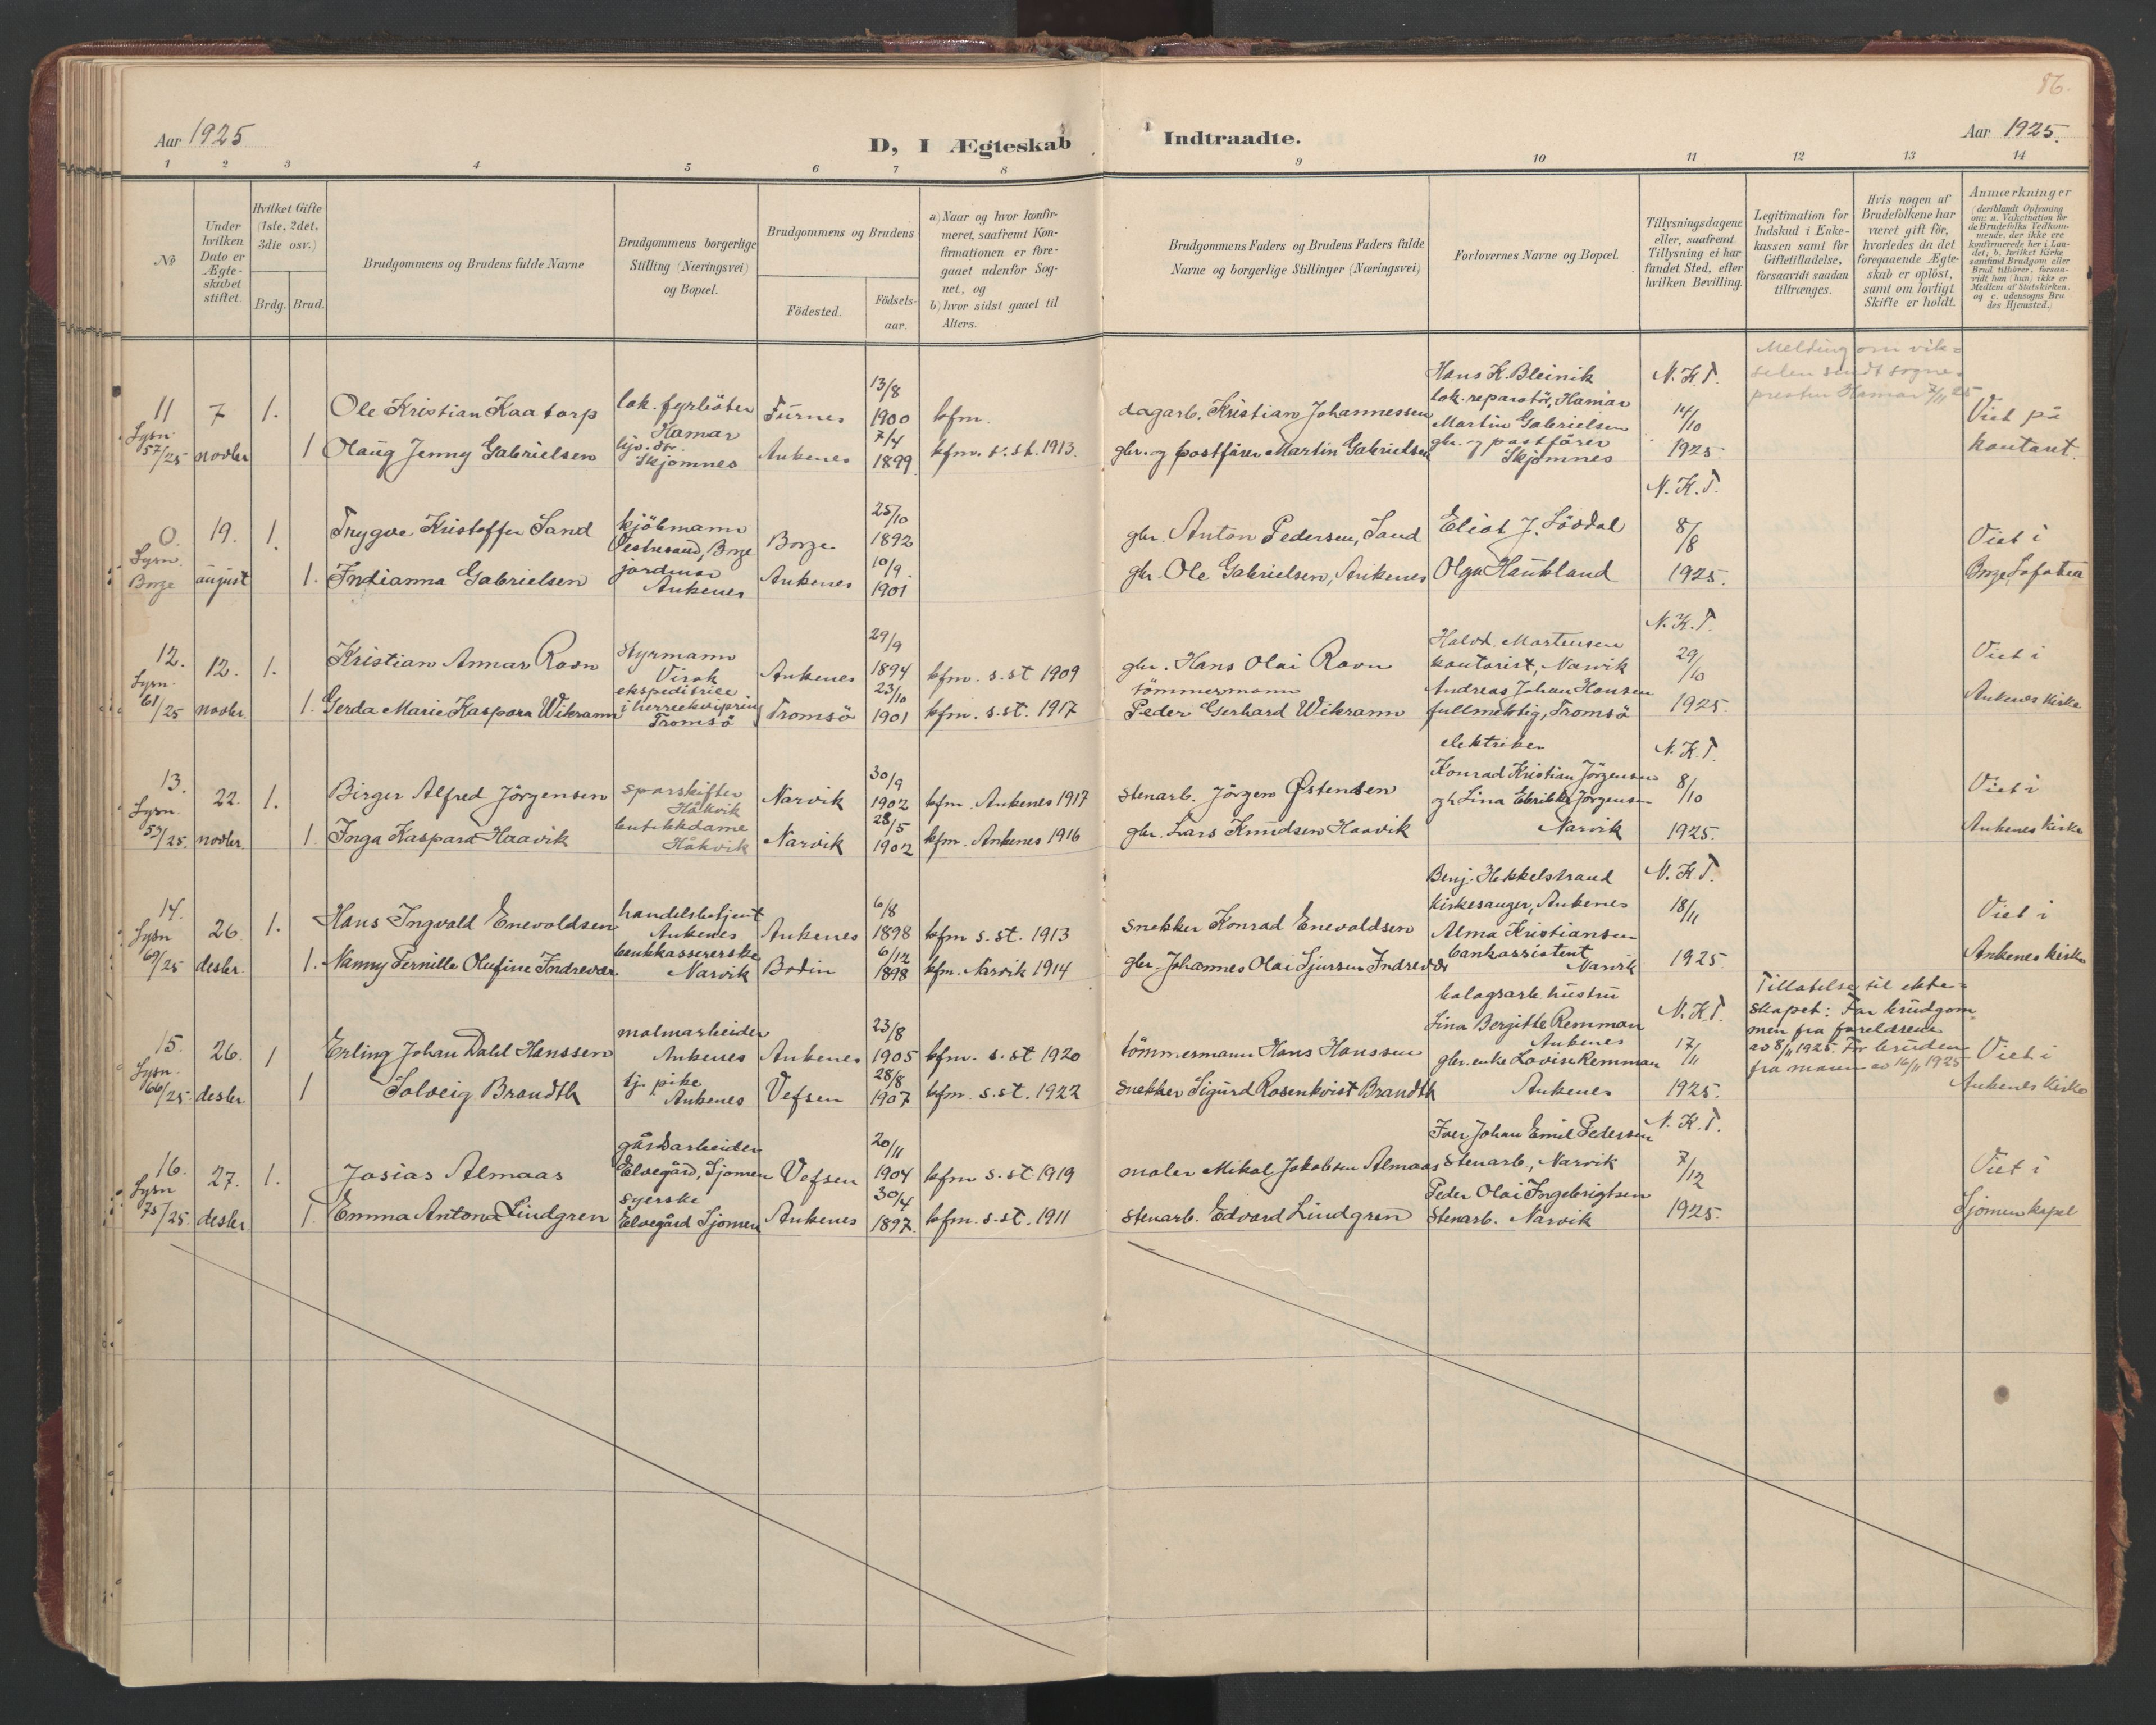 86.
Aar 1925
D, I Ægteskab Indtraadte.
Aar 1925.
1 2 3 4 5 6 7 8 9 10 11 12 13 14
№
Under hvilken Dato er Ægteskabet stiftet.
Hvilket Gifte (1ste, 2det, 3die osv.)
Brdg. Brud.
Brudgommens og Brudens fulde Navne
Brudgommens borgerlige Stilling (Næringsvei) og Bopæl.
Brudgommens og Brudens
Födested.
Födselsaar.
a) Naar og hvor konfirmeret, saafremt Konfirmationen er foregaaet udenfor Sognet, og
b) hvor sidst gaaet til Alters.
Brudgommens Faders og Brudens Faders fulde Navne og borgerlige Stillinger (Næringsvei)
Forlovernes Navne og Bopæl.
Tillysningsdagene eller, saafremt Tillysning ei har fundet Sted, efter hvilken Bevilling.
Legitimation for Indskud i Enkekassen samt for Giftetilladelse, forsaavidt saadan tiltrænges.
Hvis nogen af Brudefolkene har været gift för, hvorledes da det foregaaende Ægteskab er oplöst, samt om lovligt Skifte er holdt.
Anmærkninger (deriblandt Oplysning om: a. Vakcination for de Brudefolks Vedkommende, der ikke ere konfirmerede her i Landet; b. hvilket Kirkesamfund Brudgom eller Brud tilhörer, forsaavidt han (hun) ikke er Medlem af Statskirken, og c. udensogns Brudes Hjemsted.)
11 7 1. Ole Kristian Kaatorp lok. fyrböter Hamar Furnes 13/8 1900 kfm. dagarb. Kristian Johannessen Hans K. Bleinik lok. reparatör, Hamar N. K. T. 14/10 1925.
Melding om vikselen sendt sognepresten Hamar 7/11 25
Lysn. 57/25 novbr 1 Olaug Jenny Gabrielsen Skjomnes Ankenes 7/4 1899. kfm. s. st. 1913. gbr. og postförer Martin Gabrielsen Martin Gabrielsen gbr. og postförer Skjomnes
Viet på kontoret.
0. 19. 1. Trygve Kristoffer Sand kjöbmann Vestresand, Borge Borge 25/10 1892 gbr. Anton Pedersen, Sand Eliot J. Lövdal N. K. T. 8/8 1925.
Lysn. Borge august 1. Indianna Gabrielsen jordmor Ankenes Ankenes 10/9. 1901 gbr. Ole Gabrielsen, Ankenes Olga Haukland
Viet i Borge, Lofoten
12. 12. 1. Kristian Annar Ravn Styrmann Virak Ankenes 29/9 1894 kfm. s. st 1909 gbr. Hans Olai Ravn Halvd. Mortensen kontorist, Narvik N. K. T. 29/10 1925.
Lysn. 61/25 novbr. 1. Gerda Marie Kaspara Wikramn ekspeditrise i herreekvipring Tromsö Tromsö 23/10 1901 kfm. s. st. 1917 tömmermann Peder Gerhard Wikramn Andreas Johan Hansen fullmektig, Tromsö
Viet i Ankenes kirke
13. 22. 1. Birger Alfred Jörgensen sporskifter Håkvik Narvik 30/9 1902 kfm. Ankenes 1917 stenarb. Jörgen Østensen elektriker Konrad Kristian Jörgensen N. K. T. 8/10 1925.
Lysn. 53/25. novbr. 1 Inga Kaspara Haavik butikkdame Håkvik Narvik 28/5 1902 kfm. Ankenes 1916 gbr. Lars Knudsen Haavik og Lina Jörgensen Narvik
Viet i Ankenes kirke
14. 26 1. Hans Ingvald Enevoldsen handelsbetjent Ankenes Ankenes 6/8 1898 kfm s. st. 1913 snekker Konrad Enevoldsen Benj. Hekkelstrand kirkesanger, Ankenes N. K. T. 18/11 1925
Lysn 69/25 desbr. 1. Nanny Pernille Olufine Indrevær bankkassererske Narvik Bodin 6/12 1898 kfm. Narvik 1914 gbr. Johannes Olai Sjursen Indrevær Alma Kristiansen bankassistent Narvik
Viet i Ankenes kirke
15. 26. 1 Erling Johan Dahl Hanssen malmarbeider Ankenes Ankenes 23/8 1905 kfm. s. st 1920 tömmermann Hans Hanssen bolagsarb. hustru Lina Bergitte Remman Ankenes N. K. T. 17/11 1925.
Tillatelse til ekteskapet: For brudgommen fra foreldrene av 8/11 1925. For bruden fra moren av 16/11 1925
Lysn. 66/25. desbr 1 Solveig Brandth tj. pike Ankenes Vefsen 28/8 1907 kfm. s. st. 1922 snekker Sigurd Rosenkvist Brandth gbr. enke Lovise Remman Ankenes
Viet i Ankenes kirke
16. 27. 1. Josias Almaas gårdsarbeider Elvegård, Sjomen Vefsen 20/11 1904 kfm s. st 1919 maler Mikal Jakobsen Almaas Iver Johan Emil Pedersen stenarb., Narvik N. K. T. 7/12 1925.
Lysn 75/25. desbr. 1. Emma Antona Lindgren syerske Elvegård Sjomen Ankenes 30/4 1897. kfm. s. st. 1911 stenarb. Edvard Lindgren Peder Olai Ingebrigtsen stenarb. Narvik
Viet i Sjomen kapel